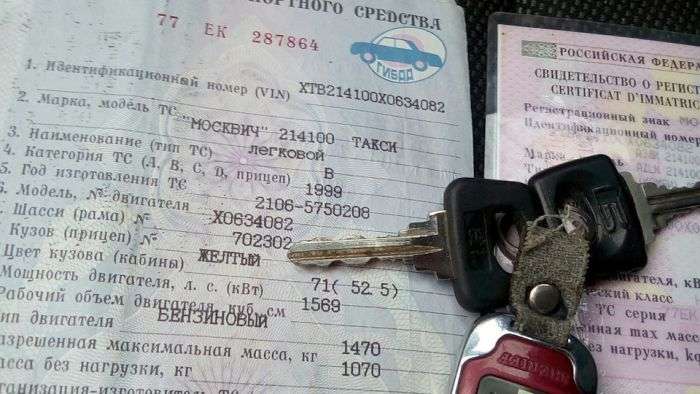 ПОРТНОГО СРЕДСТВА
77 ЕК 287864
ГИБДД
1. Идентификационный номер (VIN) XTB214100X0634082
2. Марка, модель ТС "МОСКВИЧ" 214100 ТАКСИ
3. Наименование (тип ТС) ЛЕГКОВОЙ
4. Категория ТС (А, В, С, D, прицеп) В
5. Год изготовления ТС 1999
6. Модель, № двигателя 2106-5750208
7. Шасси (рама) № X0634082
Кузов (прицеп) № 702302
Цвет кузова (кабины) ЖЕЛТЫЙ
Мощность двигателя, л. с. (кВт) 71( 52.5)
Рабочий объем двигателя, куб. см 1569
ип двигателя БЕНЗИНОВЫЙ
азрешенная максимальная масса, кг 1470
асса без нагрузки, кг 1070
ганизация-изготовитель ТС
РОССИЙСКАЯ ФЕДЕРА
СВИДЕТЕЛЬСТВО О РЕГИСТ
CERTIFICAT D'IMMATRIC
Регистрационный знак
Идентификационный номер
Марка
двигателя, кВ
ческий класс
ТС серия
нная max масса
нагрузки, kg